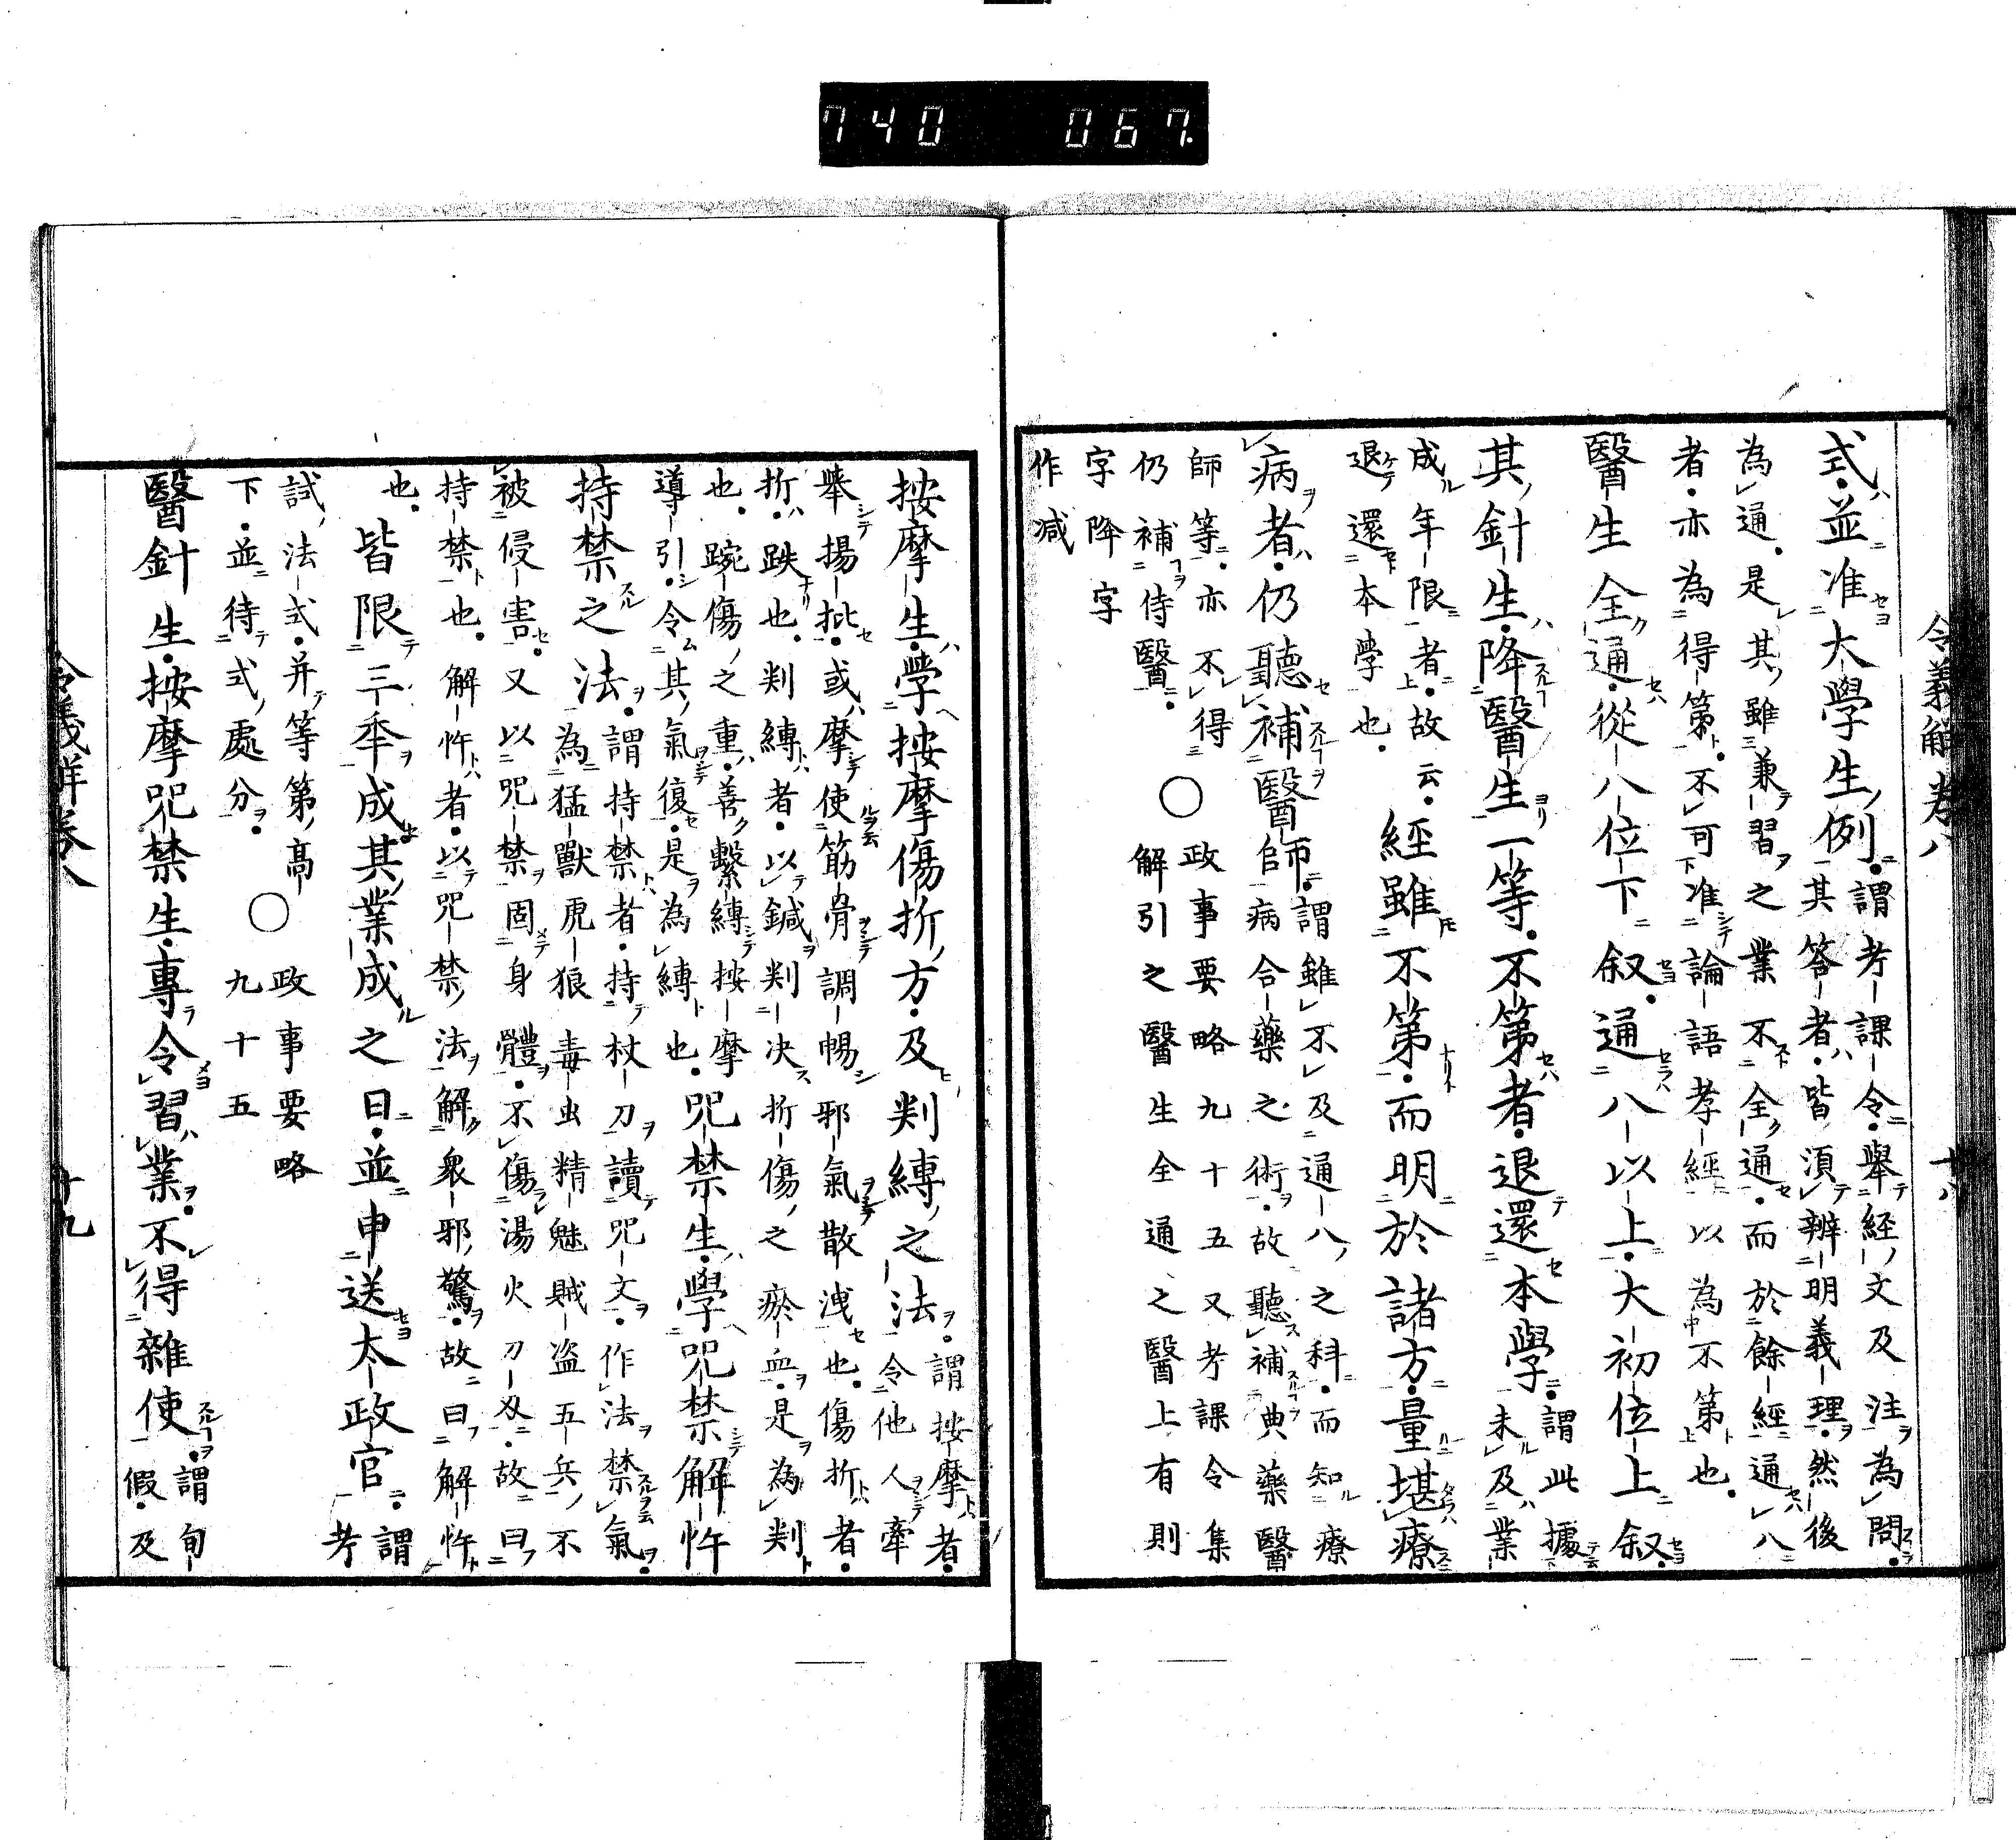 740 067.
令義解卷八 十八
式並准大學生例謂考課令舉經文及注為問
其答者皆湏辨明義理然後
為通是其雖兼習之業不全通而於餘經通八
者亦為得第不可准論語孝經以為不第也
醫生全通從八位下叙通八以上大初位上叙
其針生降醫生一等不第者退還本學謂此據
未及業
成年限者故云
退還本學也
經雖不第而明於諸方量堪療
病者仍聽補醫師謂雖不及通八之科而知療
病合藥之術故聽補典藥醫
師等亦不得○政事要略九十五又考課令集
仍補侍醫 解引之醫生全通之醫上有則
字降字
作減
按摩生學按摩傷折方及判縛之法謂按摩者
令他人牽
舉揚抋或摩使筋骨調暢邪氣散洩也傷折者
折跌也判縛者以鍼判决折傷之瘀血是為判
也踠傷之重善繫縛按摩
導引令其氣復是為縛也
咒禁生學咒禁解忤
持禁之法謂持禁者持杖刀讀咒文作法禁氣
為猛獸虎狼毒虫精魅賊盗五兵不
被侵害又以咒禁固身體不傷湯火刀刄故曰
持禁也解忤者以咒禁法解衆邪驚故曰解忤
也
皆限三年成其業成之日並申送太政官謂
考
試法式并等第高○政事要略
下並待式處分 九十五
醫針生按摩咒禁生專令習業不得雜使謂旬
假及
令義解卷八 十九